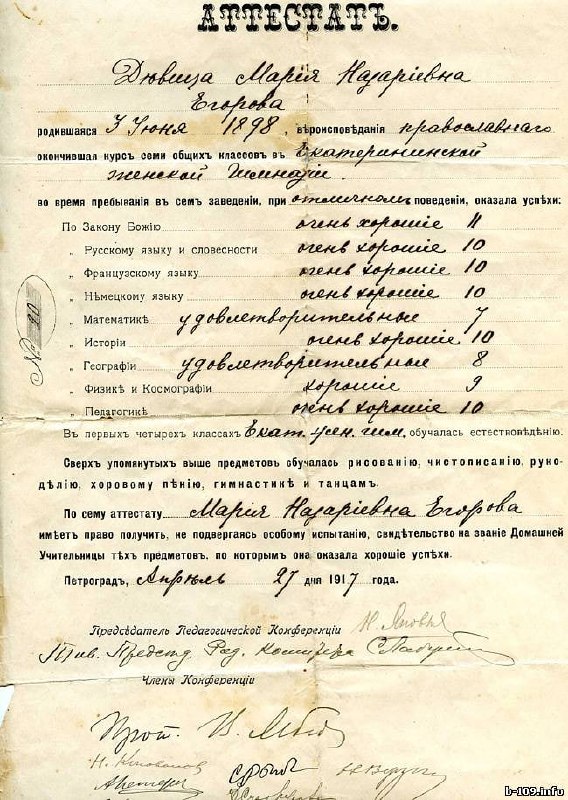 АТТЕСТАТЪ.
Дѣвица Марія Назаріевна
Егорова
родившаяся 3 Іюня 1898, вѣроисповѣданія православнаго
окончившая курсъ семи общихъ классовъ въ Екатерининской
женской Гимназіи.
во время пребыванія въ семъ заведеніи, при отличномъ поведеніи, оказала успѣхи:
По Закону Божію очень хорошіе 11
„ Русскому языку и словесности очень хорошіе 10
„ Французскому языку очень хорошіе 10
„ Нѣмецкому языку очень хорошіе 10
„ Математикѣ удовлетворительные 7
„ Исторіи очень хорошіе 10
„ Географіи удовлетворительные 8
„ Физикѣ и Космографіи хорошіе 9
„ Педагогикѣ очень хорошіе 10
№ 20
Въ первыхъ четырехъ классахъ Екат. жен. гим. обучалась естествовѣдѣнію.
Сверхъ упомянутыхъ выше предметовъ обучалась рисованію, чистописанію, руко-
дѣлію, хоровому пѣнію, гимнастикѣ и танцамъ.
По сему аттестату Марія Назаріевна Егорова
имѣетъ право получить, не подвергаясь особому испытанію, свидѣтельство на званіе Домашней
Учительницы тѣхъ предметовъ, по которымъ она оказала хорошіе успѣхи.
Петроградъ, Апрѣль 27 дня 1917 года.
Предсѣдатель Педагогической Конференціи
Члены Конференціи
Прот. В.
b-109.info